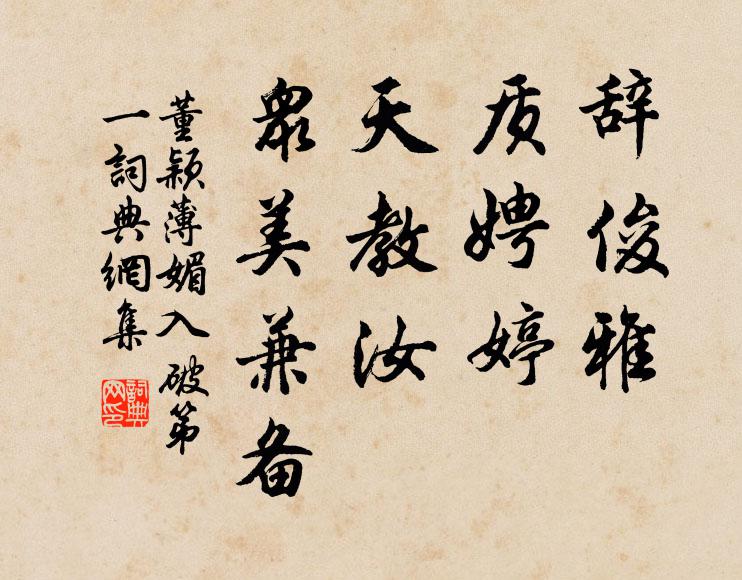 辞俊雅
质娉婷
天教汝
眾美兼备
董颖薄媚入破第
一詞典網集
詞典網印